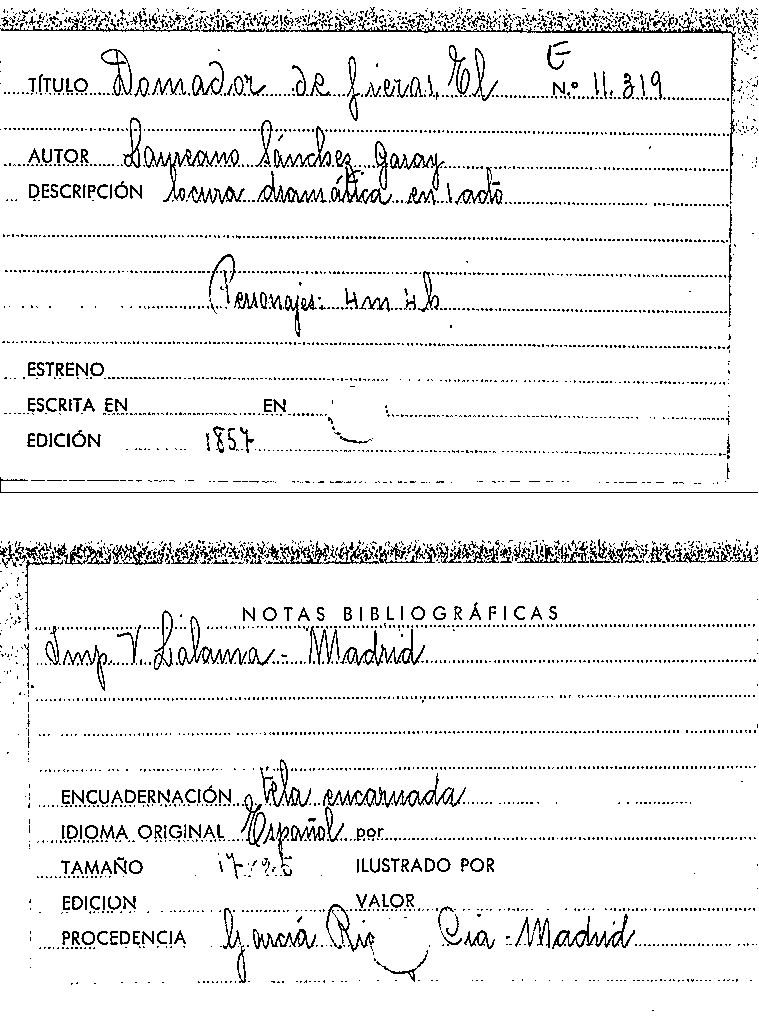 E
TÍTULO Domador de fieras, El N.º 11.319
AUTOR Laureano Sánchez Garay
DESCRIPCIÓN locura dramática en 1 acto
Personajes: 4m 4h
ESTRENO
ESCRITA EN EN
EDICIÓN 1857
NOTAS BIBLIOGRÁFICAS
Imp V. Lalama - Madrid
ENCUADERNACIÓN tela encarnada
IDIOMA ORIGINAL Español por
TAMAÑO ILUSTRADO POR
EDICION VALOR
PROCEDENCIA García Rico Cia - Madrid